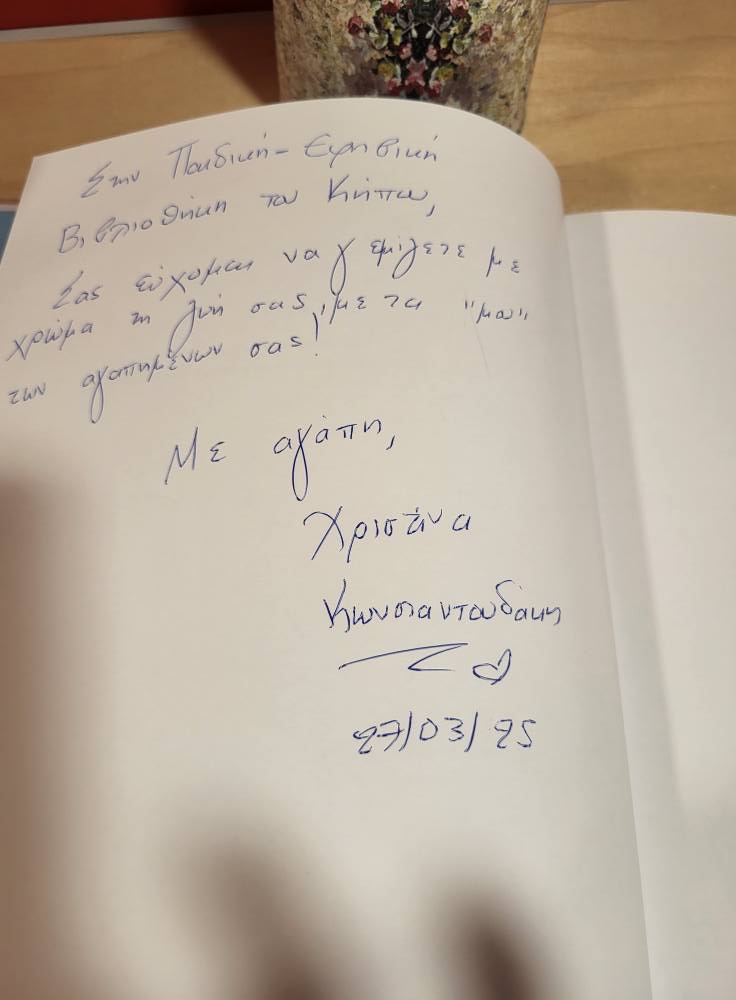 Στην Παιδική - Εφηβική
Βιβλιοθήκη του Κήπου,
Σας εύχομαι να γεμίζετε με
χρώμα τη ζωή σας, με τα "μου"
των αγαπημένων σας!
Με αγάπη,
Χριστάνα
Κωνσταντουδάκη
27/03/25